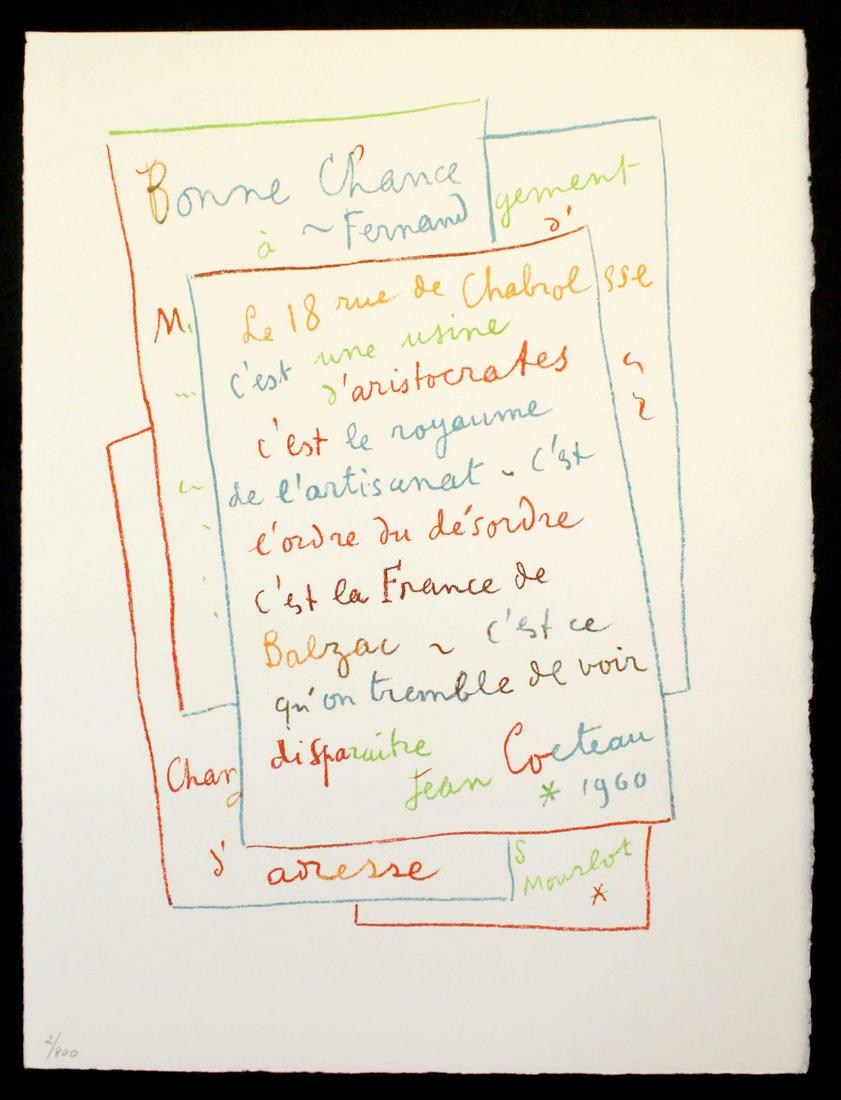 Bonne Chance
à ~ Fernand
gement
d'
M.
Le 18 rue de Chabrol
sse
c'est une usine
d'aristocrates
c'est le royaume
de l'artisanat ~ C'est
l'ordre du désordre
c'est la France de
Balzac ~ C'est ce
qu'on tremble de voir
disparaître
Jean Cocteau
* 1960
Chan
d'adresse
S
Mourlot
*
2/800